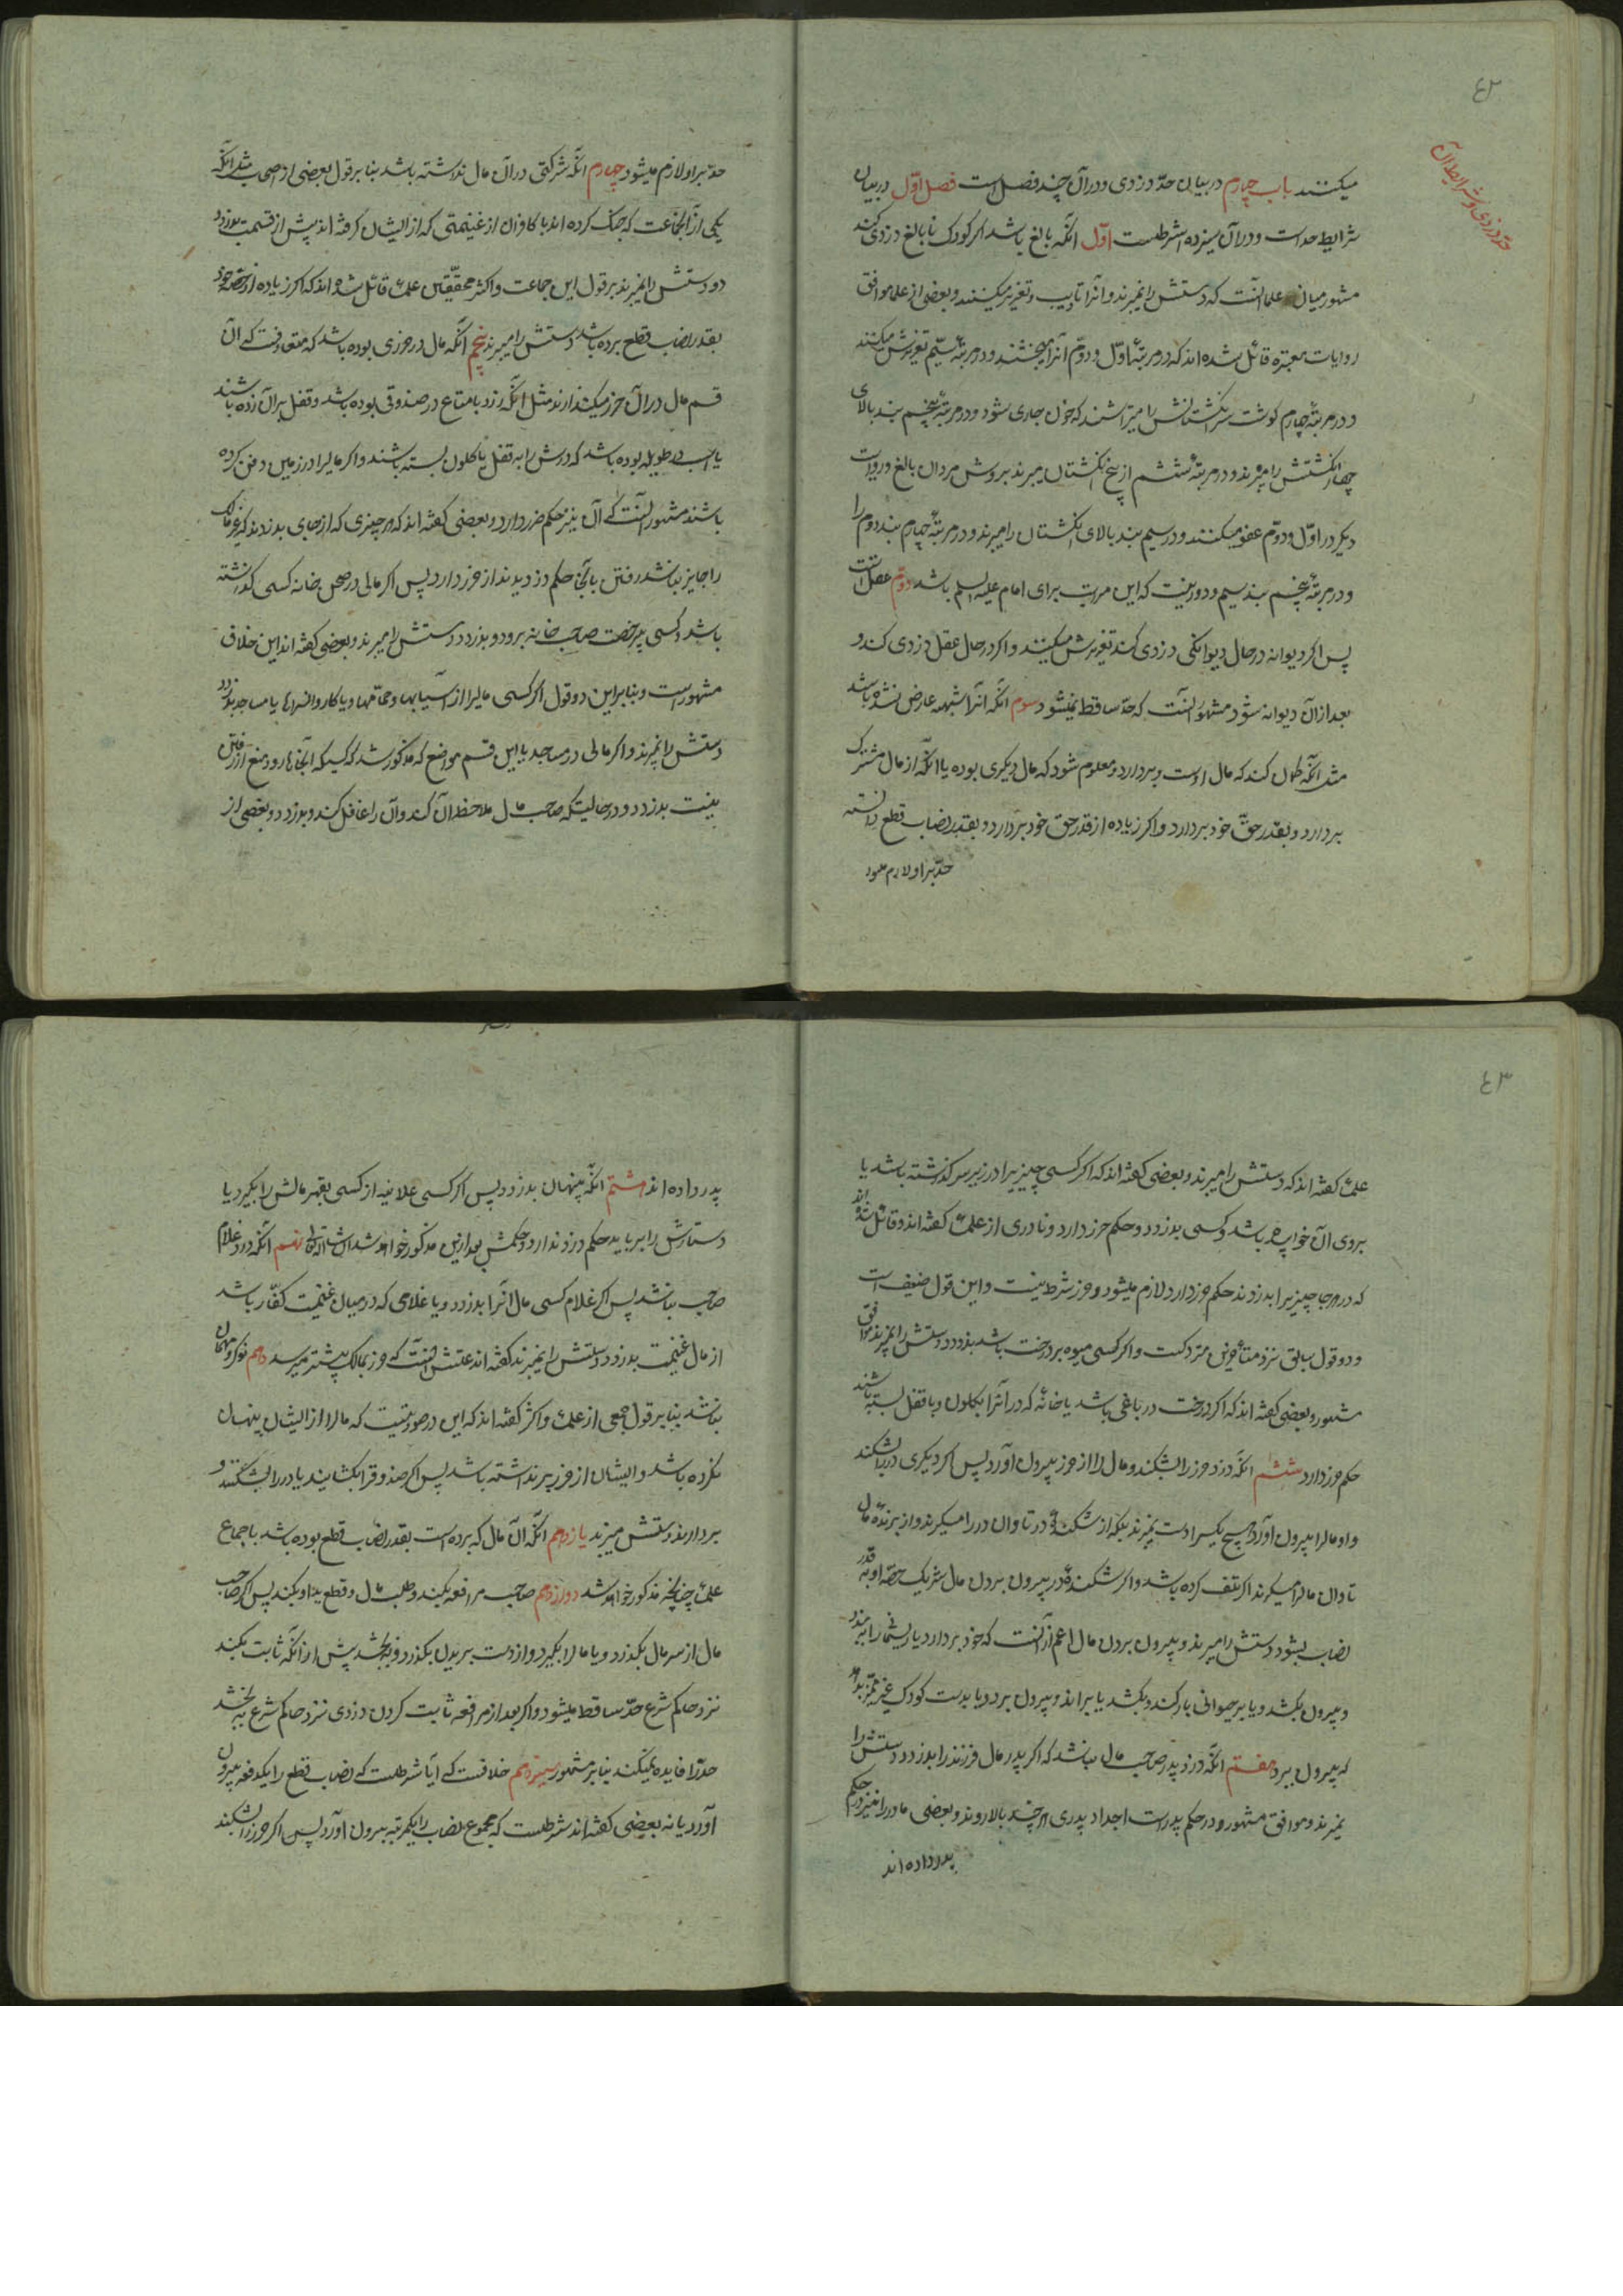 ٤٢
حدّ دزدی و شرایط آن
میکنند باب چهارم در بیان حدّ دزدی و در آن چند فصل است فصل اوّل در بیان
شرایط حد است و در آن سیزده شرطست اوّل انکه بالغ باشد اکر کودک نابالغ دزدی کند
مشهور میان علما انست که دستش را نمیبرند و انرا تادیب و تعزیر میکنند و بعضی از علما موافق
روایات معتبره قائل شده اند که در مرتبۀ اوّل و دوّم انرا میبخشند و در مرتبۀ سیّم تعزیرش میکنند
و در مرتبۀ چهارم کوشت سر انکشتانش را میتراشند که خون جاری شود و در مرتبۀ پنجم بند بالای
چهار انکشتش را میبرند و در مرتبۀ ششم از بیخ انکشتان میبرند بروش مردان بالغ و روایت
دیکر در اوّل و دوّم عفو میکنند و در سیم بند بالای انکشتان را میبرند و در مرتبۀ چهارم بند دوم را
و در مرتبۀ پنجم بند سیم و دور نیست که این مراتب برای امام علیه السلم باشد دوّم عقل است
پس اکر دیوانه در حال دیوانکی دزدی کند تعزیرش میکنند و اکر در حال عقل دزدی کند و
بعد از آن دیوانه شود مشهور آنست که حدّ ساقط نمیشود سوم انکه انرا شبهه عارض نشده باشد
مثل انکه کمان کند که مال اوست و بردارد و معلوم شود که مال دیکری بوده یا انکه از مال مشترک
بردارد و بقدر حقّ خود بردارد و اکر زیاده از قدر حق خود بردارد و بقدر نصاب قطع دانسته
حدّ بر او لازم میشود
حد بر او لازم میشود چهارم انکه شرکتی در آن مال نداشته باشد بنا بر قول بعضی از اصحاب مثل انکه
یکی از آنجماعت که جنک کرده اند با کافران از غنیمتی که از ایشان کرفته اند پیش از قسمت بدزدد
دو دستش را نمیبرند بر قول این جماعت و اکثر محققین علما قائل شده اند که اکر زیاده از حصّه خود
بقدر نصاب قطع برده باشد دستش را میبرند پنجم انکه مال در حرزی بوده باشد که متعارفست که آن
قسم مال در آن حرز میکذارند مثل انکه زر و یا متاع در صندوقی بوده باشد و قفل بر آن زده باشند
یا اسب در طویله بوده باشد که درش را به قفل یا کلون بسته باشند و اکر مالیرا در زمین دفن کرده
باشند مشهور انست که آن نیز حکم حرز دارد و بعضی کفته اند که هر چیزی که از جای بدزدند که غیر مالک
را جایز نباشد رفتن بانجا حکم دزدیدن از حرز دارد پس اکر مالی در صحن خانه کسی کذاشته
باشد و کسی بیرخصت صاحب خانه برود و بدزدد دستش را میبرند و بعضی کفته اند این خلاف
مشهور است و بنابر این دو قول اکر کسی مالیرا از آسیابها و حمّامها و یا کاروانسراها یا مساجد بدزدد
دستش را نمیبرند و اکر مالی در مساجد یا این قسم مواضع که مذکور شد که کسیکه آنجاها رود منع از رفتن
نیست بدزدد و در حالیتکه صاحب مال ملاحظه آن کند و ان را غافل کند و بدزدد و بعضی از
٤٣
علما کفته اند که دستش را میبرند و بعضی کفته اند که اکر کسی چیزیرا در زیر سر کذاشته باشد یا
بروی آن خوابیده باشد و کسی بدزدد و حکم حرز دارد و نادری از علما کفته اند و قائل شده اند
که در هر جا چیزیرا بدزدند حکم حرز دارد لازم میشود و حرز شرط نیست و این قول ضعیف است
و دو قول سابق نزد متأخرین متروکست و اکر کسی میوه بر درخت باشد بدزدد دستش را نمیبرند موافق
مشهور و بعضی کفته اند که اکر درخت در باغی باشد یا خانۀ که در آنرا بکلون و یا قفل بسته باشند
حکم حرز دارد ششم انکه دزد حرز را بشکند و مال را از حرز بیرون آورد پس اکر دیکری در را بشکند
و او مالرا بیرون آورد هیچ یکرا دست نمیبرند بلکه از شکنندۀ در تاوان در را میکیرند و از برندۀ مال
تاوان مالرا میکیرند اکر تلف کرده باشد و اکر شکنندۀ در بیرون بردن مال شریک حصّه او بقدر
نصاب بشود دستش را میبرند و بیرون بردن مال اعم از آنست که خود بردارد یا ریسمانرا ببندد
و بیرون بکشد و یا بر حیوانی بار کند و بکشد یا براند و بیرون برد و یا بدست کودک غیر ممیّز بدهد
که بیرون ببرد هفتم انکه دزد پدر صاحب مال نباشد که اکر پدر مال فرزند را بدزدد دستش را
نمیبرند و موافق مشهور و در حکم پدر است اجداد پدری هر چند بالا روند و بعضی مادر را نیز در حکم
پدر داده اند
پدر داده اند هشتم انکه پنهان بدزدد پس اکر کسی علانیه از کسی بقهر مالش را بکیرد یا
دستارش را برباید حکم دزد ندارد و حکمش بعد از این مذکور خواهد شد انشاالله تعالی نهم انکه دزد غلام
صاحب نباشد پس اکر غلام کسی مال انرا بدزدد و یا غلامی که در میان غنیمت کفّار باشد
از مال غنیمت بدزدد دستش را نمیبرند کفته اند علتش آنست که ضرر بمالک بیشتر میرسد دهم نوکر و مهمان
نباشد بنابر قول جمعی از علما و اکثر کفته اند که این در صورتیست که مالرا از ایشان پنهان
نکرده باشد و ایشان از حرز بر نداشته باشد پس اکر صندوقرا بکشایند یا در را بشکنند و
بردارند دستش میبرند یازدهم انکه آن مال که برده است بقدر نصاب قطع بوده باشد باجماع
علما چنانچه مذکور خواهد شد دوازدهم صاحب مرافعه بکند و طلب مال و قطع ید او بکند پس اکر صاحب
مال از سر مال بکذرد و یا مالرا بکیرد و از دست بریدن بکذرد و ببخشد پیش از انکه ثابت بکند
نزد حاکم شرع حدّ ساقط میشود و اکر بعد از مرافعه ثابت کردن دزدی نزد حاکم شرع ببخشد
حدّرا فایده نمیکند بنابر مشهور سیزدهم خلافست که آیا شرطست که نصاب قطع را یکدفعه بیرون
آورد یا نه بعضی کفته اند شرطست که مجموع نصاب را یکمرتبه بیرون آورد پس اکر حرز را بشکند